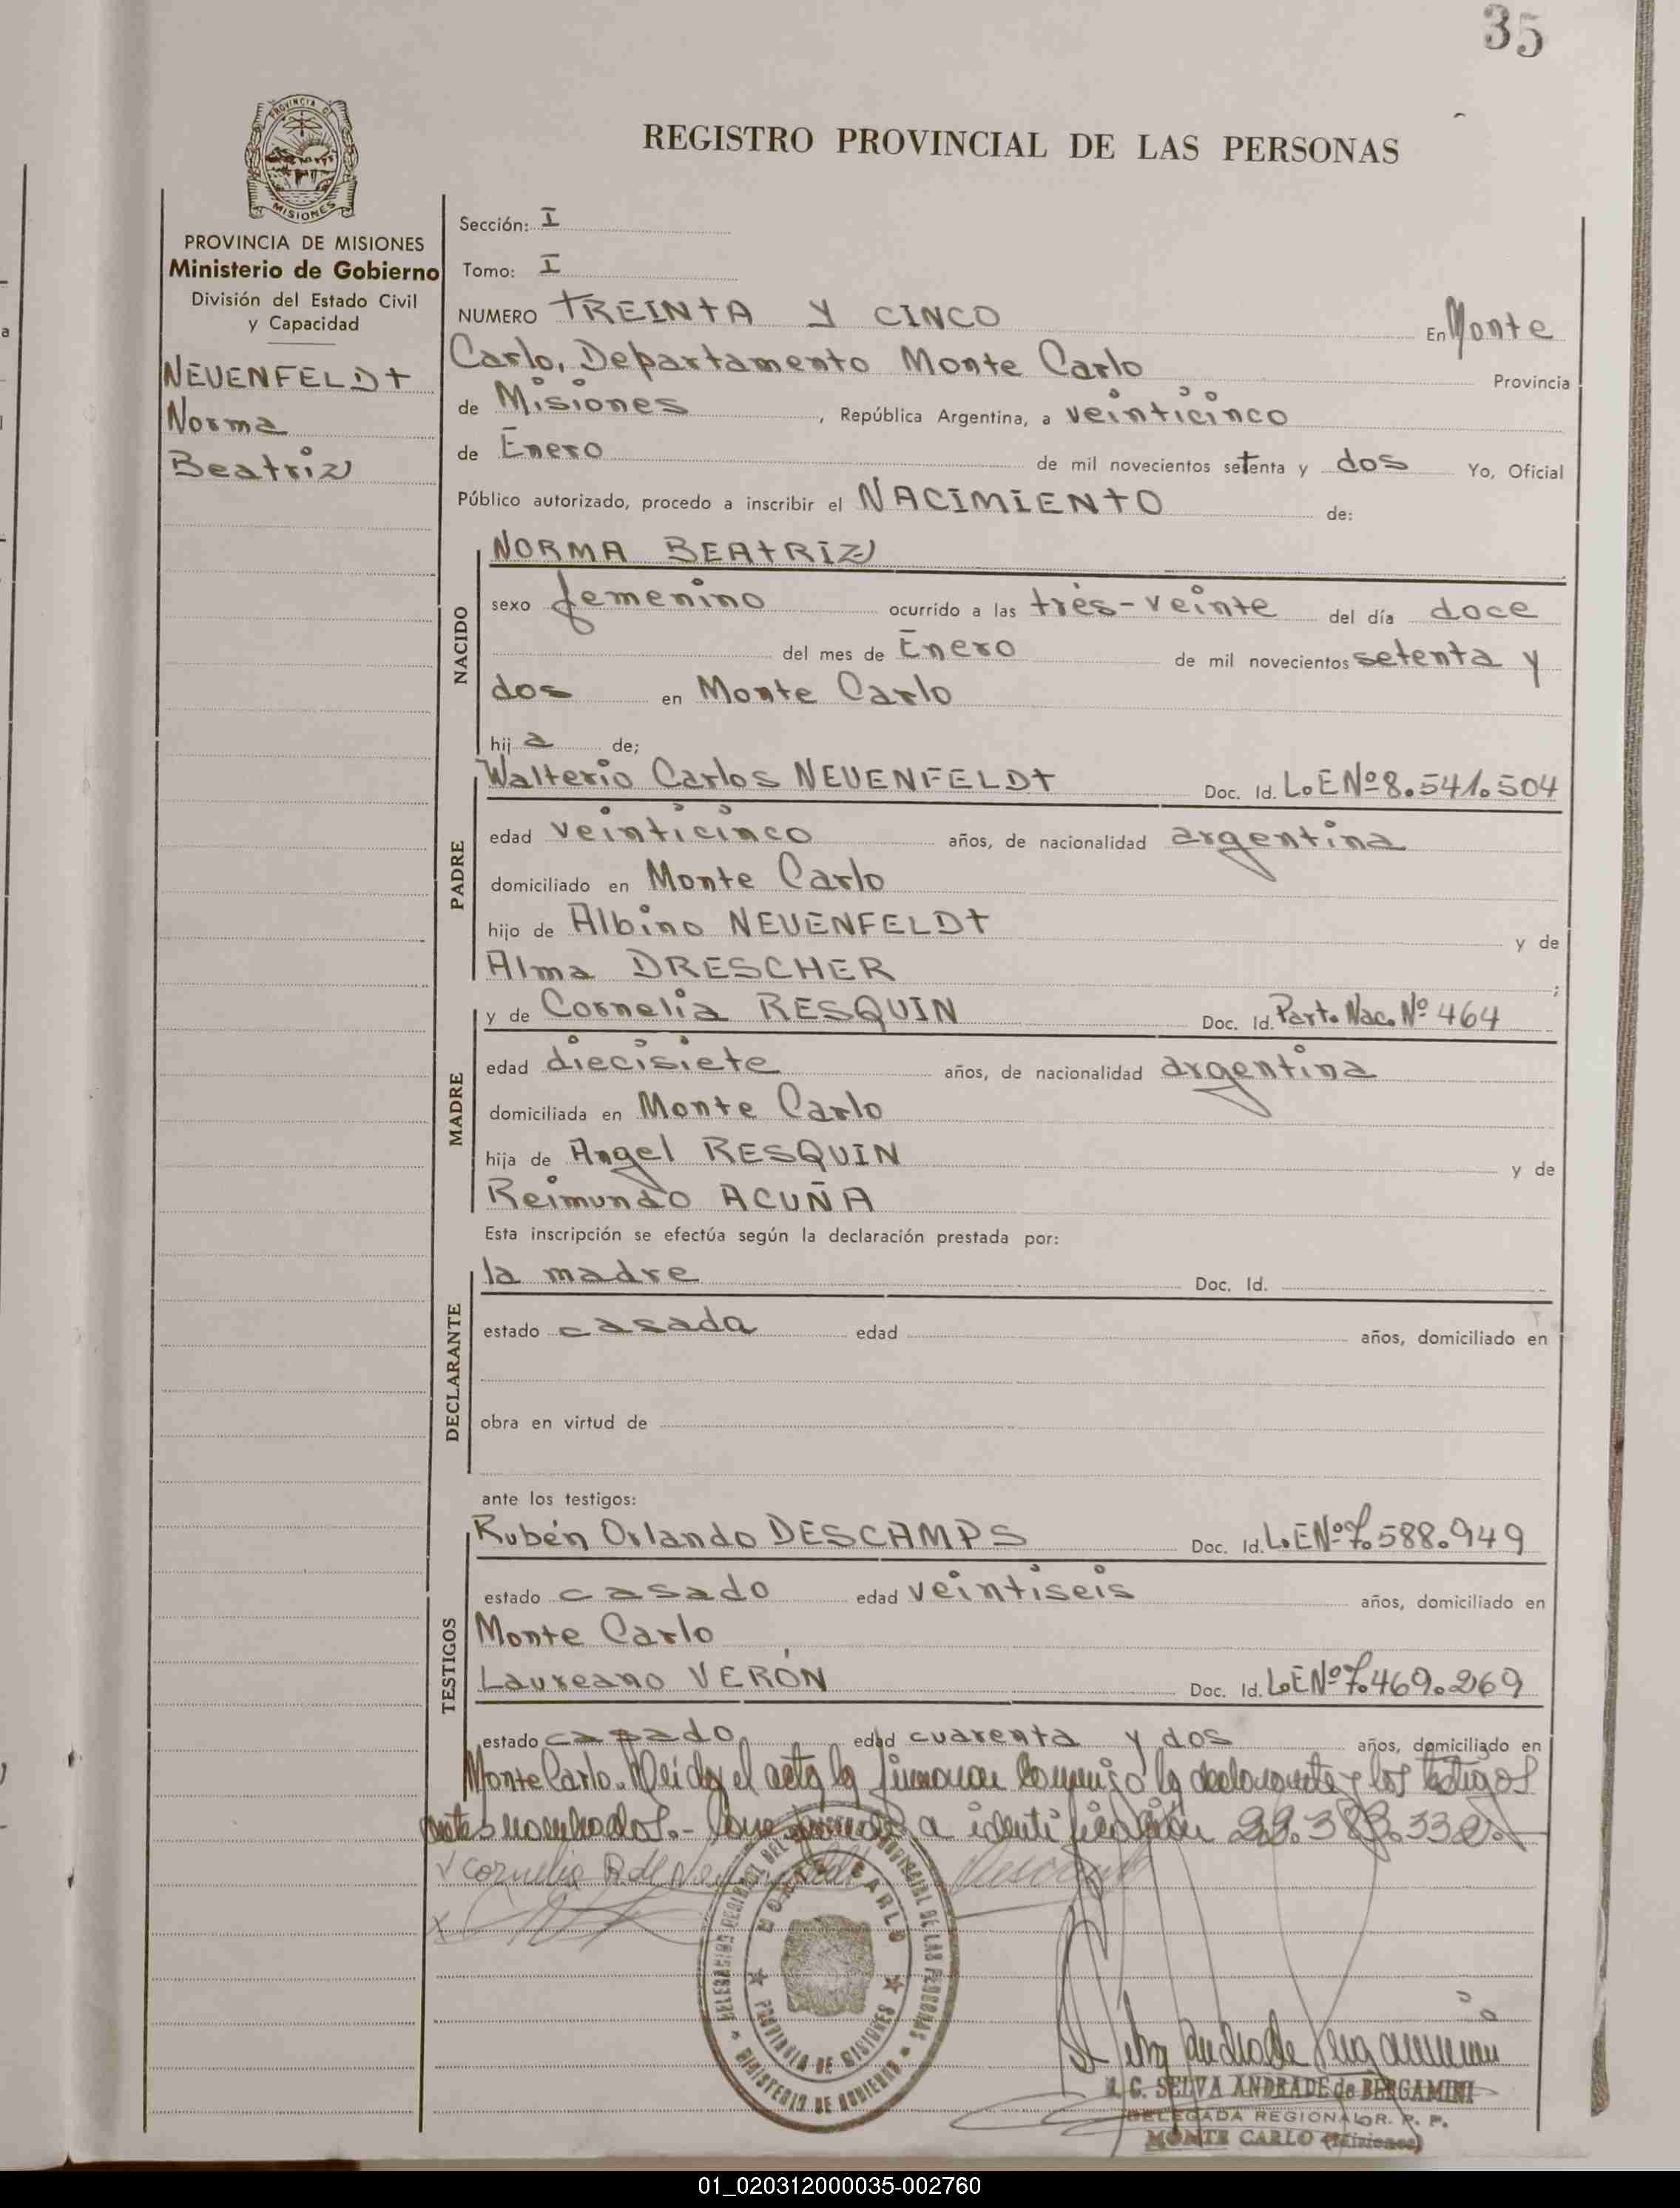 35
PROVINCIA DE
MISIONES
REGISTRO PROVINCIAL DE LAS PERSONAS
PROVINCIA DE MISIONES
Ministerio de Gobierno
División del Estado Civil
y Capacidad
NEUENFELDT
Norma
Beatriz
Sección: I
Tomo: I
NUMERO TREINTA Y CINCO En Monte
Carlo, Departamento Monte Carlo Provincia
de Misiones, República Argentina, a veinticinco
de Enero de mil novecientos setenta y dos Yo, Oficial
Público autorizado, procedo a inscribir el NACIMIENTO de:
NACIDO
NORMA BEATRIZ
sexo femenino ocurrido a las tres-veinte del día doce
del mes de Enero de mil novecientos setenta y
dos en Monte Carlo
hija de;
PADRE
Walterio Carlos NEUENFELDT Doc. Id. L.E Nº 8.541.504
edad veinticinco años, de nacionalidad argentina
domiciliado en Monte Carlo
hijo de Albino NEUENFELDT y de
Alma DRESCHER ;
MADRE
y de Cornelia RESQUIN Doc. Id. Part. Nac. Nº 464
edad diecisiete años, de nacionalidad argentina
domiciliada en Monte Carlo
hija de Angel RESQUIN y de
Reimundo ACUÑA
Esta inscripción se efectúa según la declaración prestada por:
DECLARANTE
la madre Doc. Id.
estado casada edad años, domiciliado en
obra en virtud de
ante los testigos:
TESTIGOS
Rubén Orlando DESCAMPS Doc. Id. L.E Nº 7.588.949
estado casado edad veintiseis años, domiciliado en
Monte Carlo
Laureano VERÓN Doc. Id. L.E Nº 7.469.269
estado casado edad cuarenta y dos años, domiciliado en
Monte Carlo. Leída el acta la firman conmigo la declarante y los testigos
antes nombrados.- a identificación
Cornelia R. de
DELEGACION REGIONAL DEL REGISTRO PROVINCIAL DE LAS PERSONAS
MONTE CARLO
PROVINCIA DE MISIONES
MINISTERIO DE GOBIERNO
C. SELVA ANDRADE de BERGAMINI
DELEGADA REGIONAL R. P. P.
MONTE CARLO (Misiones)
01_020312000035-002760